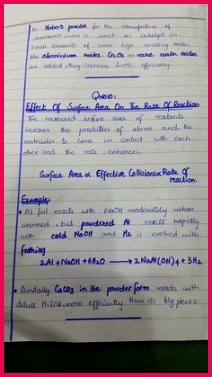 In Haber's process for the manufacture of
ammonia iron is used as catalyst in
small amounts of some high melting oxides
like aluminium oxides. Cr2O3 or rare earth oxides
are added they increase iron's efficiency.
Effect Of Surface Area On The Rate Of Reaction:
The increased surface area of reactants
increases the possibilities of atoms and the
molecules to come in contact with each
other and the rate enhances.
Surface Area α Effective Collisions α Rate Of
reaction.
Example:
• Al foil reacts with NaOH moderately when
warmed, but powdered Al reacts rapidly
with cold NaOH and H2 is evolved with
frothing.
2Al + NaOH + 6H2O → 2NaAl(OH)4 + 3H2
• Similarly CaCO3 in the powder form reads with
dilute H2SO4 more efficiently than its big pieces.